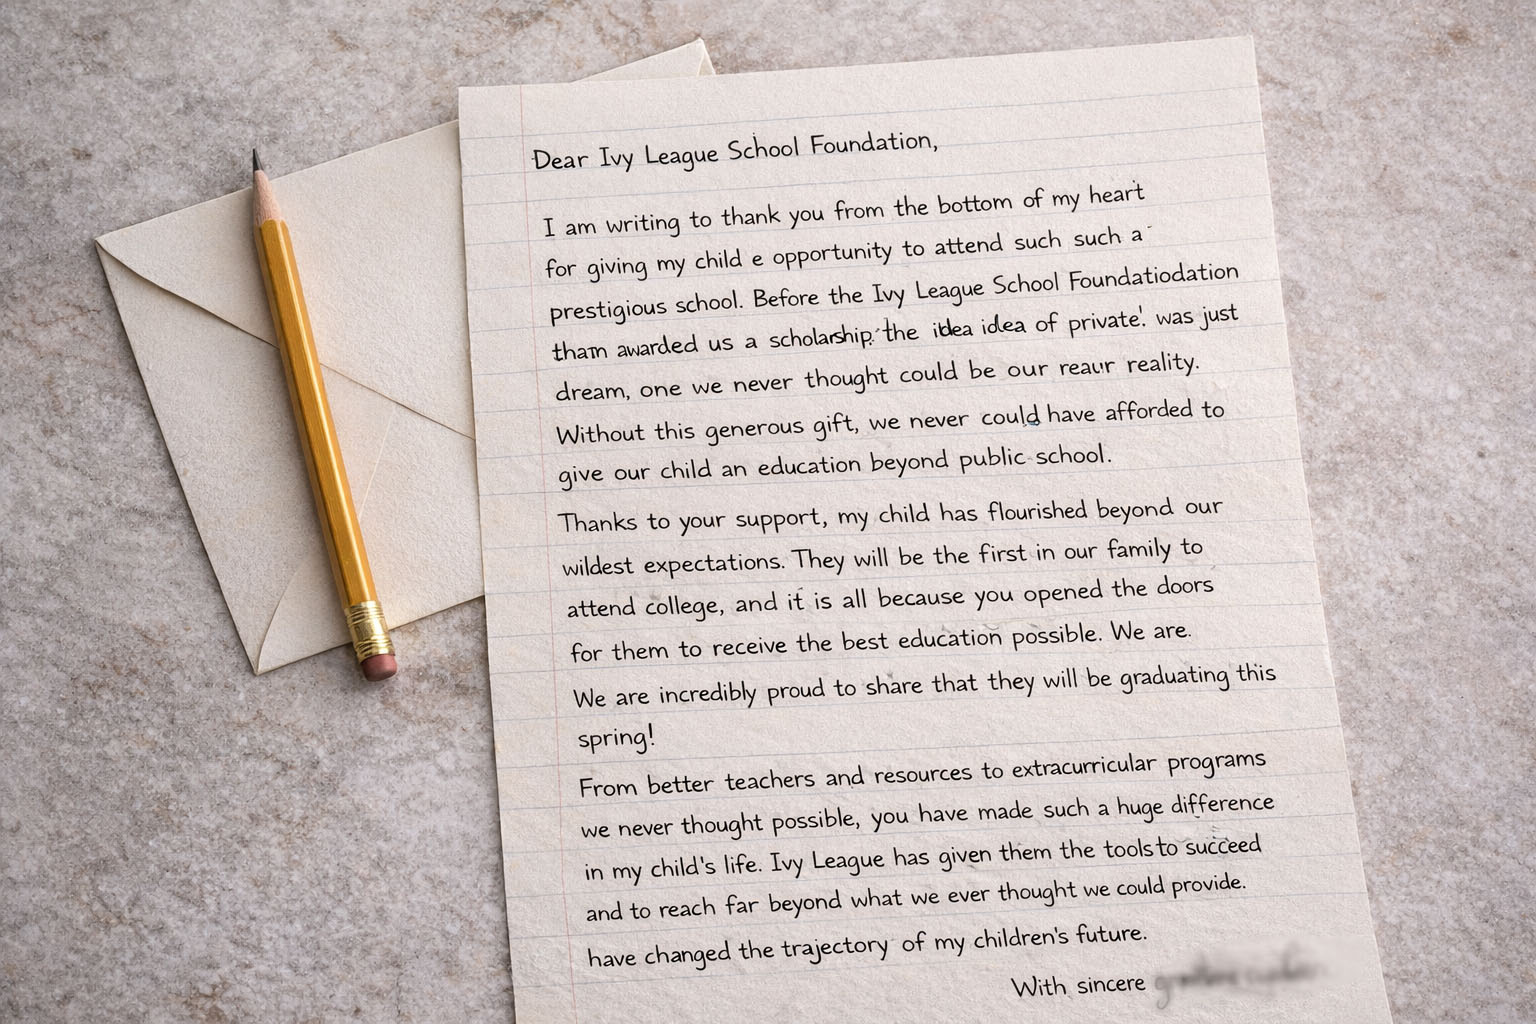 Dear Ivy League School Foundation,
I am writing to thank you from the bottom of my heart
for giving my child e opportunity to attend such such a
prestigious school. Before the Ivy League School Foundatiodation
tham awarded us a scholarship. the idea idea of private! was just
dream, one we never thought could be our reaur reality.
Without this generous gift, we never could have afforded to
give our child an education beyond public school.
Thanks to your support, my child has flourished beyond our
wildest expectations. They will be the first in our family to
attend college, and it is all because you opened the doors
for them to receive the best education possible. We are.
We are incredibly proud to share that they will be graduating this
spring!
From better teachers and resources to extracurricular programs
we never thought possible, you have made such a huge difference
in my child's life. Ivy League has given them the tools to succeed
and to reach far beyond what we ever thought we could provide.
have changed the trajectory of my children's future.
With sincere